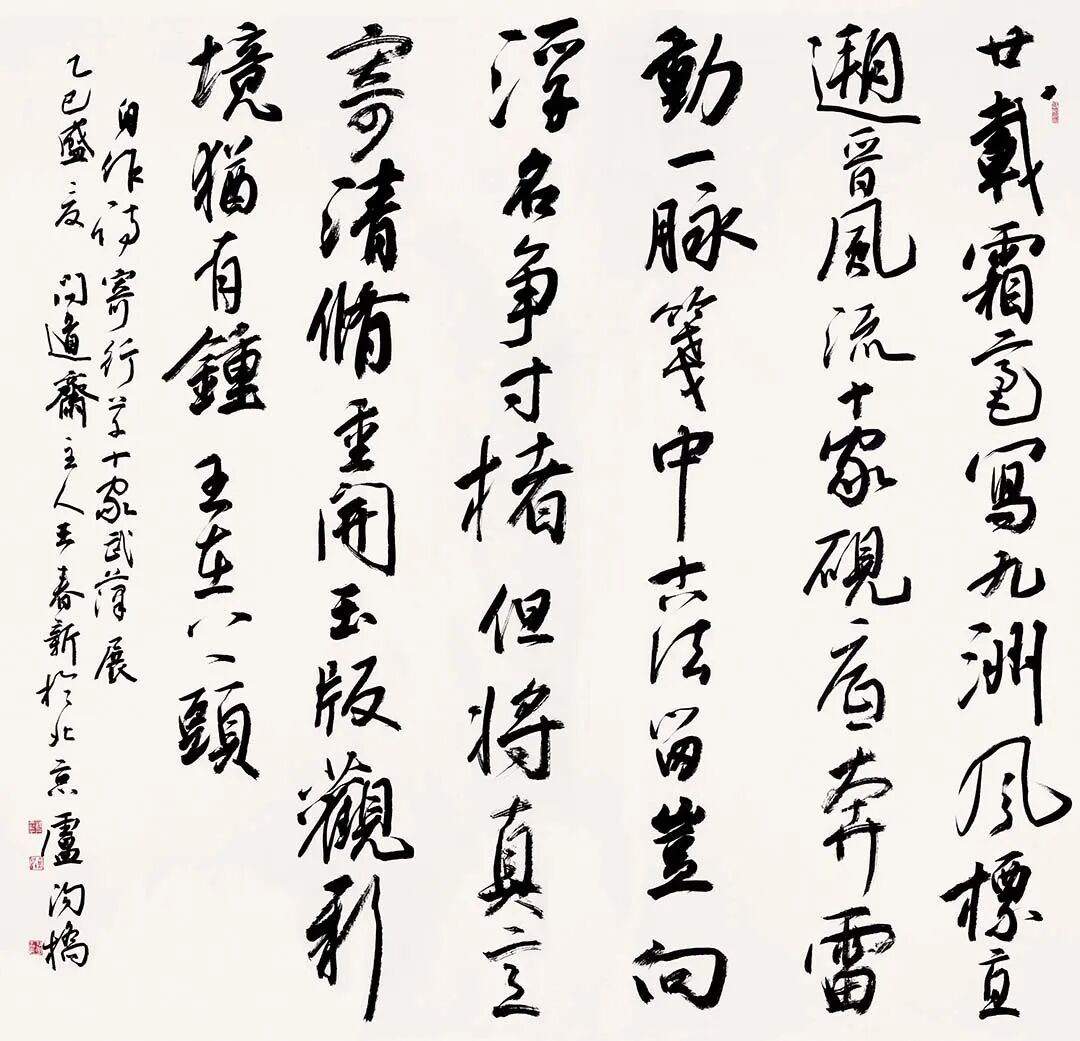 廿載霜毫寫九洲風標直
遡晉風流十家硯底奔雷
動一脉箋中古法留豈向
浮名争寸楮但將真意
寄清脩重開玉版觀新
境猶有鍾王在心頭
自作詩寄行草十家武漢展
乙巳盛夏問道齋主人王春新於北京盧溝橋